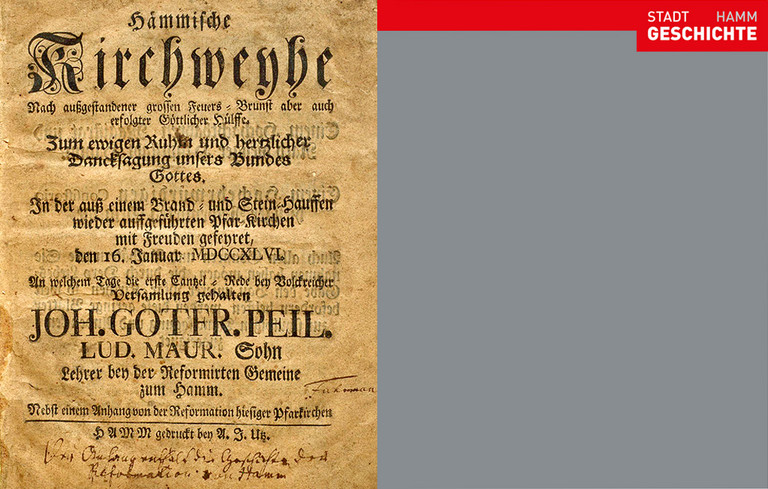 Hämmische
Kirchweyhe
Nach außgestandener grossen Feuers-Brunst aber auch
erfolgter Göttlicher Hülffe,
Zum ewigen Ruhm und hertzlicher
Dancksagung unsers Bundes
Gottes,
In der auß einem Brand- und Stein-Hauffen
wieder auffgeführten Pfar-Kirchen
mit Freuden gefeyret,
den 16. Januar. MDCCXLVI.
An welchem Tage die erste Cantzel-Rede bey Volckreicher
Versamlung gehalten
JOH. GOTFR. PEIL.
LUD. MAUR. Sohn
Lehrer bey der Reformirten Gemeine
zum Hamm.
Nebst einem Anhang von der Reformation hiesiger Pfarkirchen
HAMM gedruckt bey A. J. Utz.
Der Anhang enthält die Geschichte der
Reformation von Hamm
STADT HAMM
GESCHICHTE